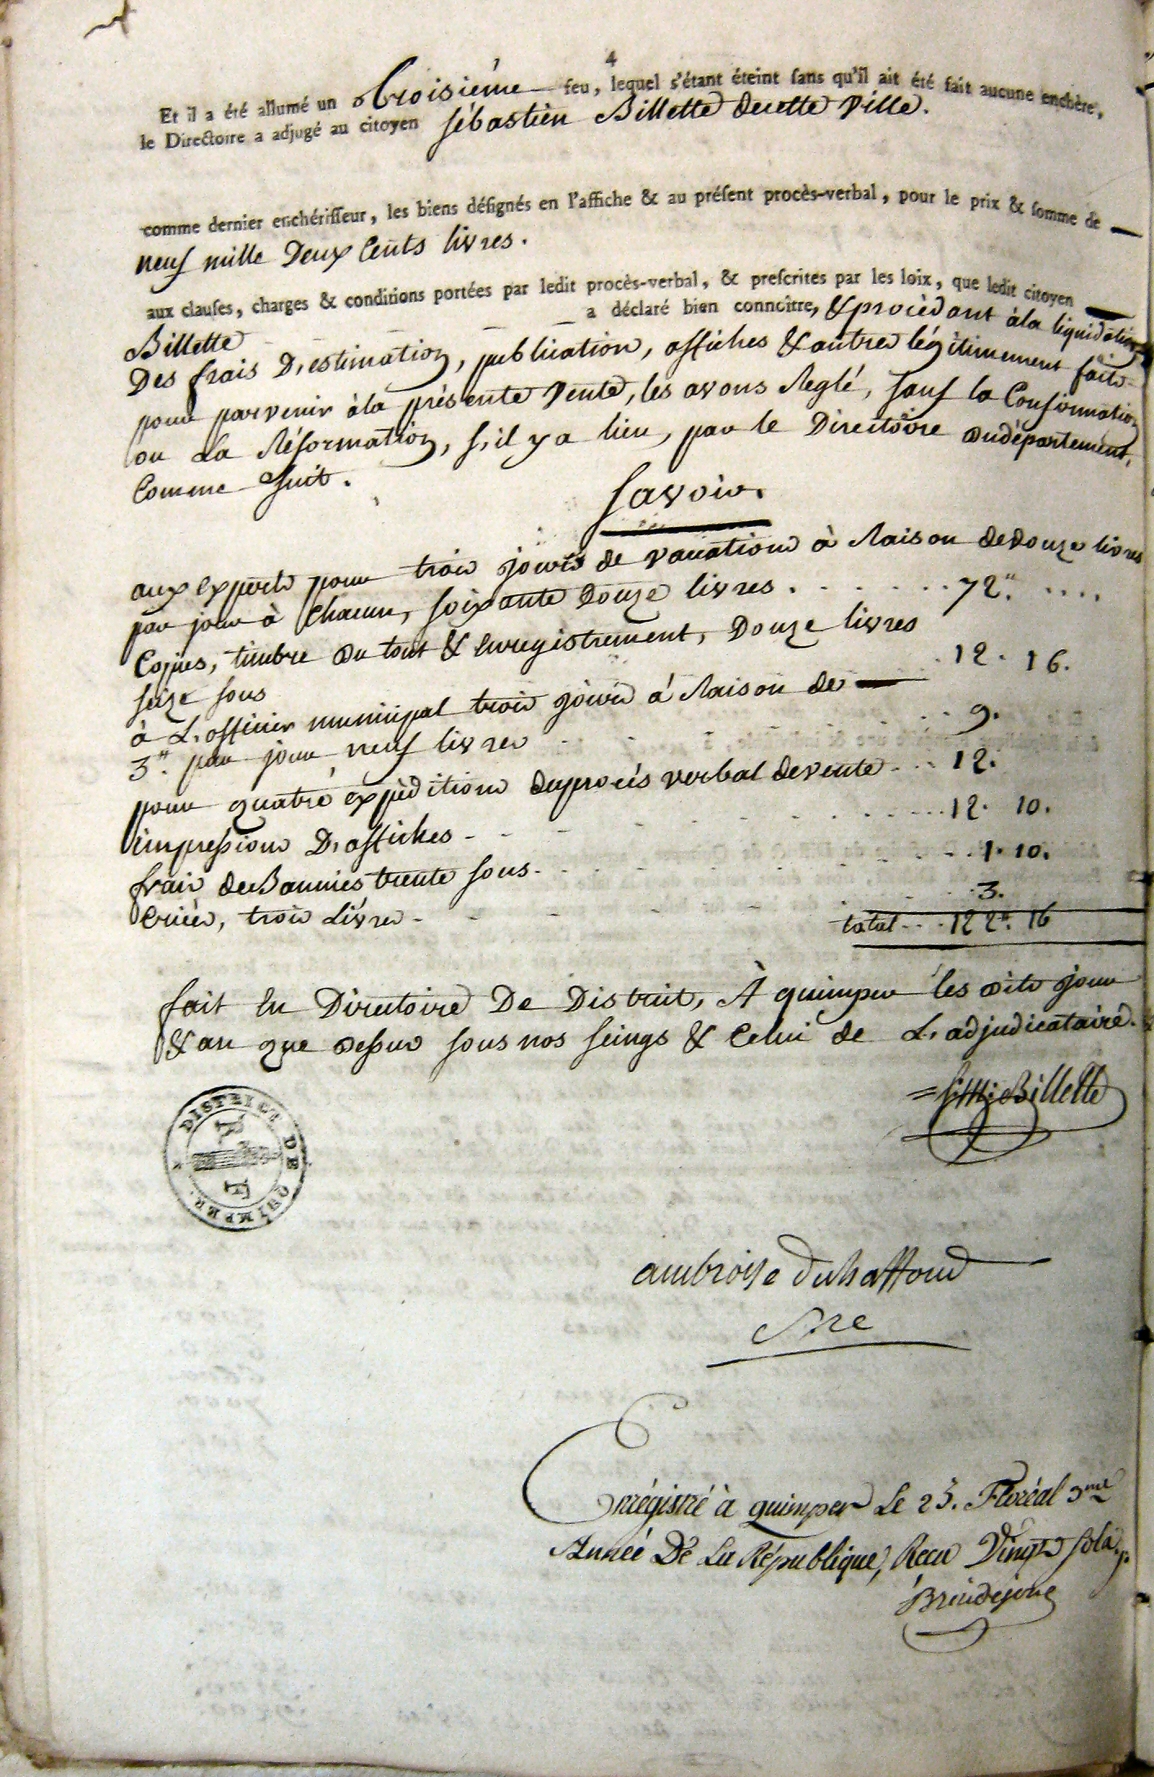 4
Et il a été allumé un troisiéme feu, lequel s'étant éteint sans qu'il ait été fait aucune enchère,
le Directoire a adjugé au citoyen sébastien Billette decette ville.
comme dernier enchérisseur, les biens désignés en l'affiche & au présent procès-verbal, pour le prix & somme de
neuf mille Deux Cents livres.
aux clauses, charges & conditions portées par ledit procès-verbal, & prescrites par les loix, que ledit citoyen
Billette a déclaré bien connoître, & procédant àla liquidation
Des frais D'estimation, publication, affiches & autres légitimement faits
pour parvenir àla présente vente, les avons Reglé, sauf la Confirmation
ou La Réformation, s'il y a lieu, par le Directoire dudépartement,
Comme suit.
Savoir.
aux experts pour trois jours de vacations à Raison dedouze livres
par jour à Chacun, soixante Douze livres. 72.#
Copies, timbre du tout & enregistrement, Douze livres
seize sous 12. 16.
à L'officier municipal trois jours à Raison de
3.# par jour neuf livres 9.
pour quatre expéditions duprocés verbal devente 12.
impressions D'affiches 12. 10.
frais deBannies trente sous 1. 10.
Criées, trois Livres 3.
total 122.# 16
fait en Directoire De District, À quimper les dits jour
& an que dessus sous nos seings & Celui de L'adjudicataire.
Billette
DISTRICT DE QUIMPER.
ambroise duhaffond
Enrégistré à quimper Le 25. Floréal 3me
Année De La République, Recu Vingt sols